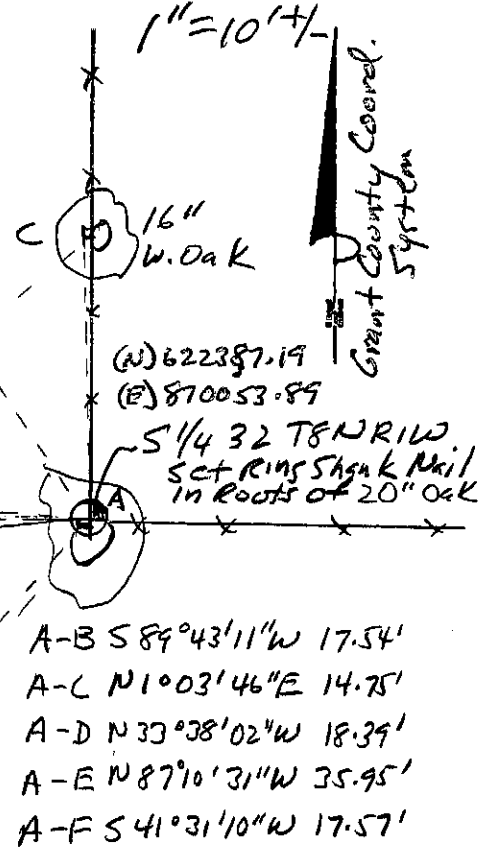 1"=10'+/-
Grant County Coord.
System
C
16"
W. Oak
(N) 622387.19
(E) 870053.89
S 1/4 32 T8N R1W
set Ring Shank Nail
in Roots of 20" Oak
A
A-B S 89°43'11"W 17.54'
A-C N 1°03'46"E 14.75'
A-D N 33°38'02"W 18.39'
A-E N 87°10'31"W 35.95'
A-F S 41°31'10"W 17.57'